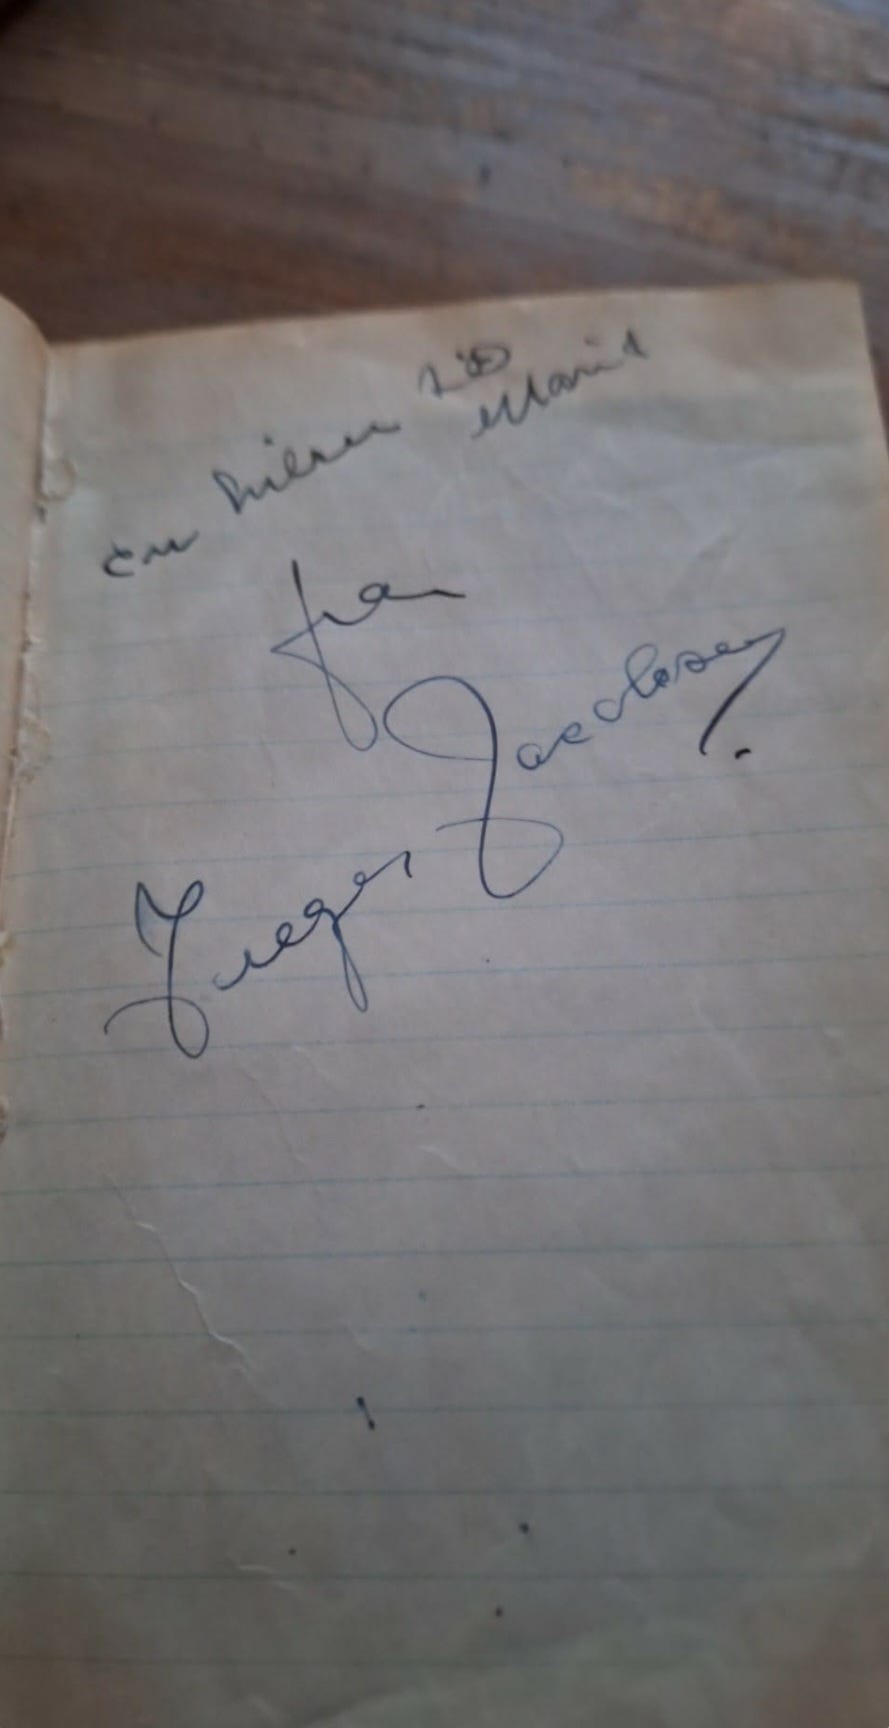 en hilsen til
Marit
fra
Jacobsen